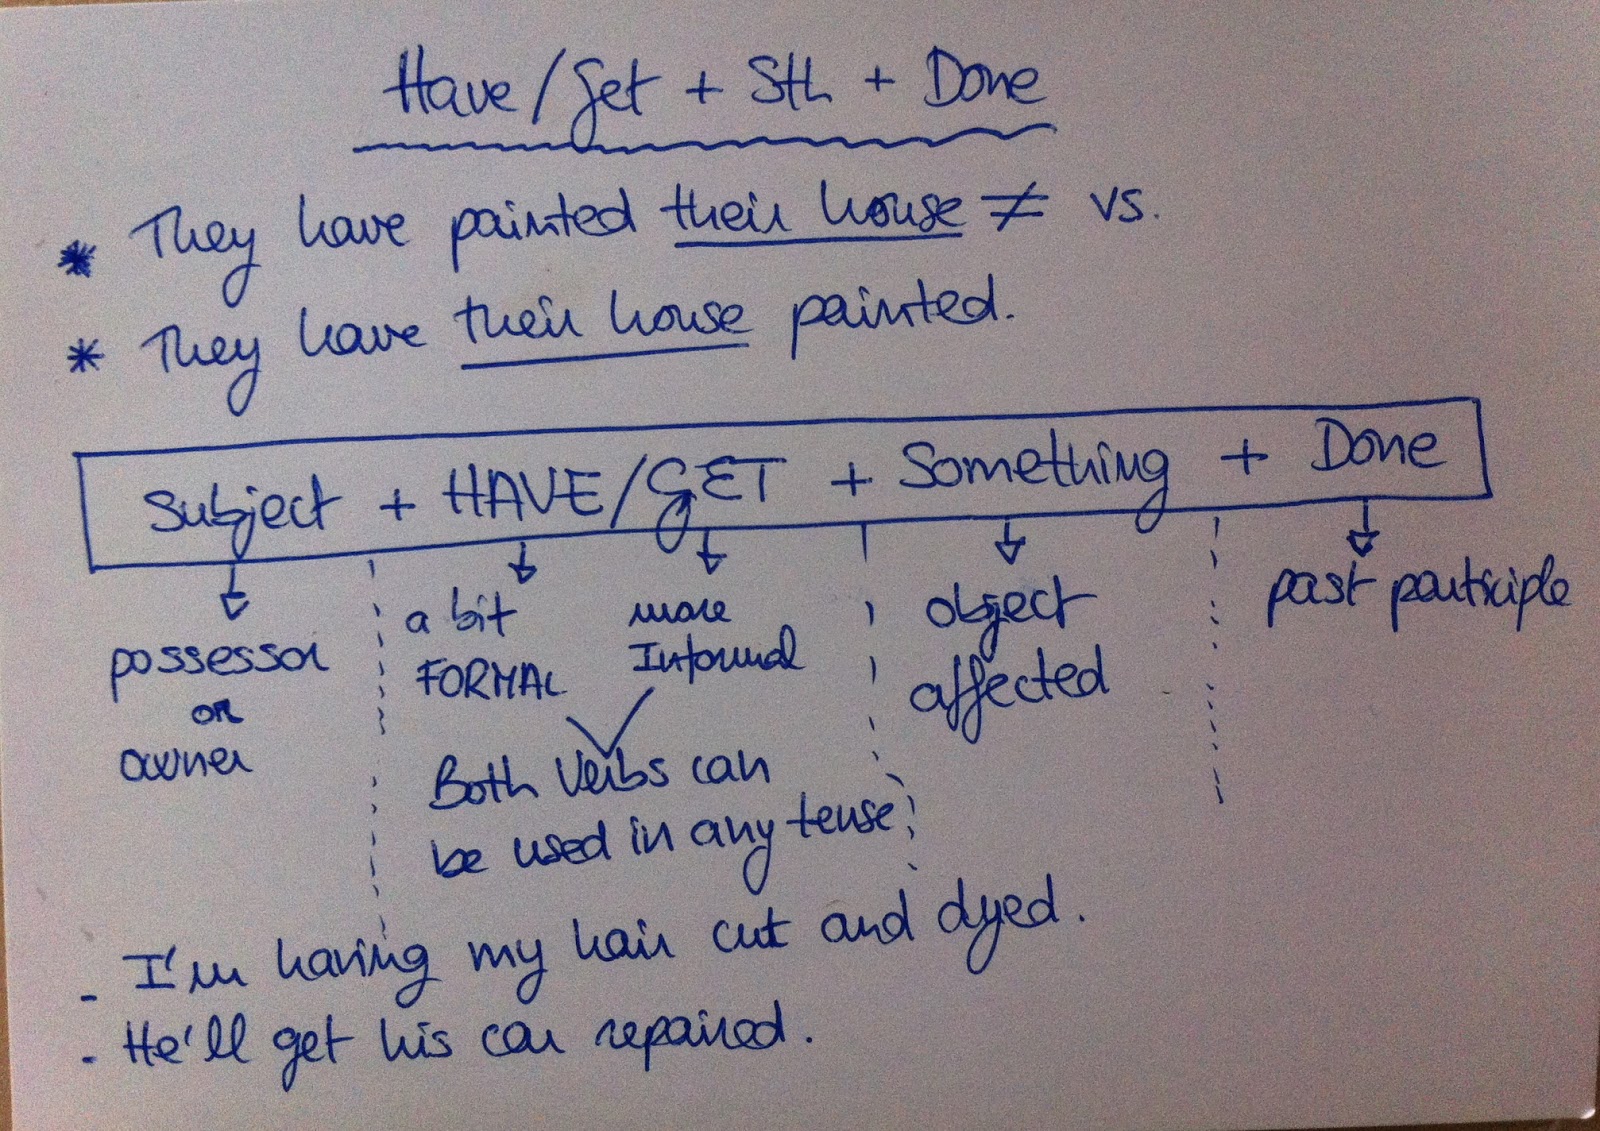 Have/Get + Sth + Done
* They have painted their house ≠ vs.
* They have their house painted.
Subject + HAVE/GET + Something + Done
possessor
or
owner
a bit
FORMAL
more
Informal
Both Verbs can
be used in any tense
object
affected
past participle
- I'm having my hair cut and dyed.
- He'll get his car repaired.